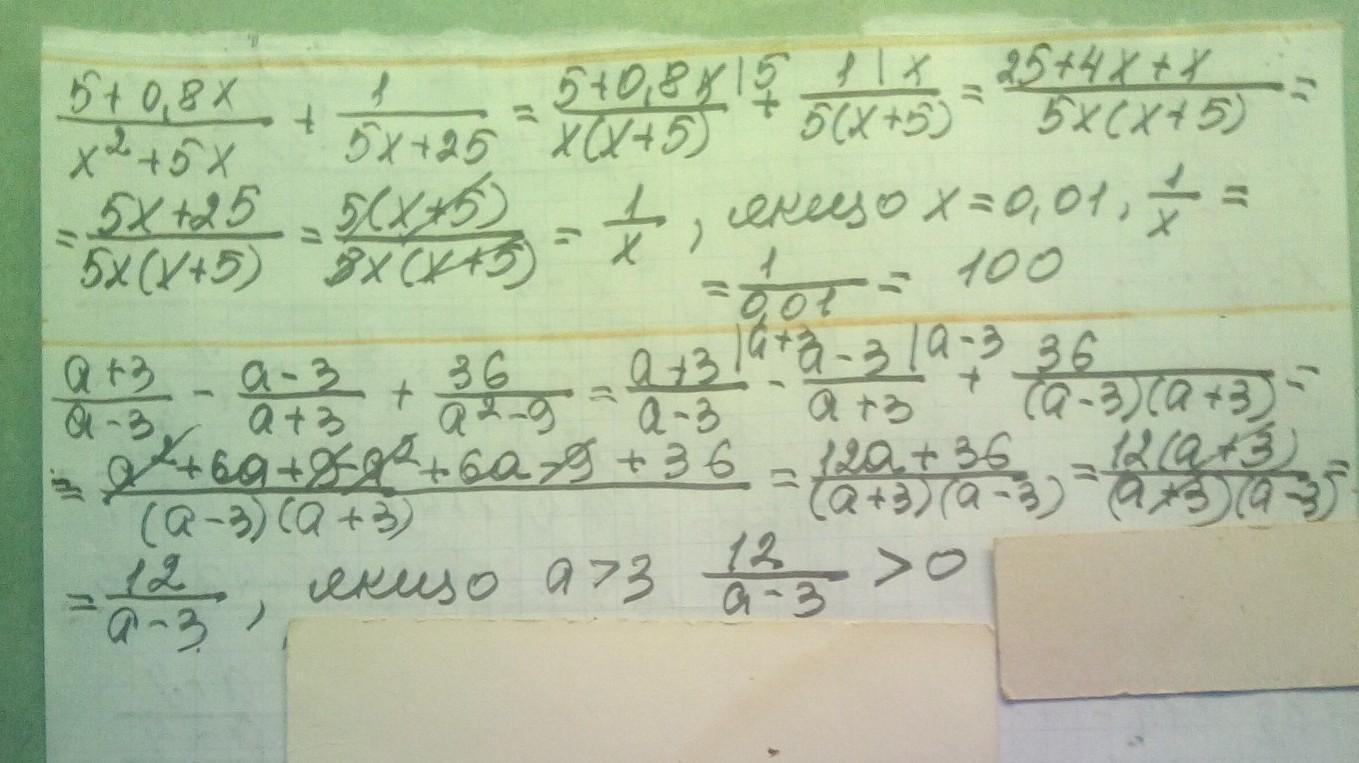 (5+0,8x)/(x²+5x) + 1/(5x+25) = (5+0,8x)/(x(x+5)) |5 + 1/(5(x+5)) |x = (25+4x+x)/(5x(x+5)) =
= (5x+25)/(5x(x+5)) = (5(x+5))/(5x(x+5)) = 1/x , якщо x=0,01, 1/x =
= 1/0,01 = 100
(a+3)/(a-3) - (a-3)/(a+3) + 36/(a²-9) = (a+3)/(a-3) |a+3 - (a-3)/(a+3) |a-3 + 36/((a-3)(a+3)) =
= (a²+6a+9-a²+6a-9+36)/((a-3)(a+3)) = (12a+36)/((a+3)(a-3)) = (12(a+3))/((a+3)(a-3)) =
= 12/(a-3) , якщо a>3 12/(a-3) >0